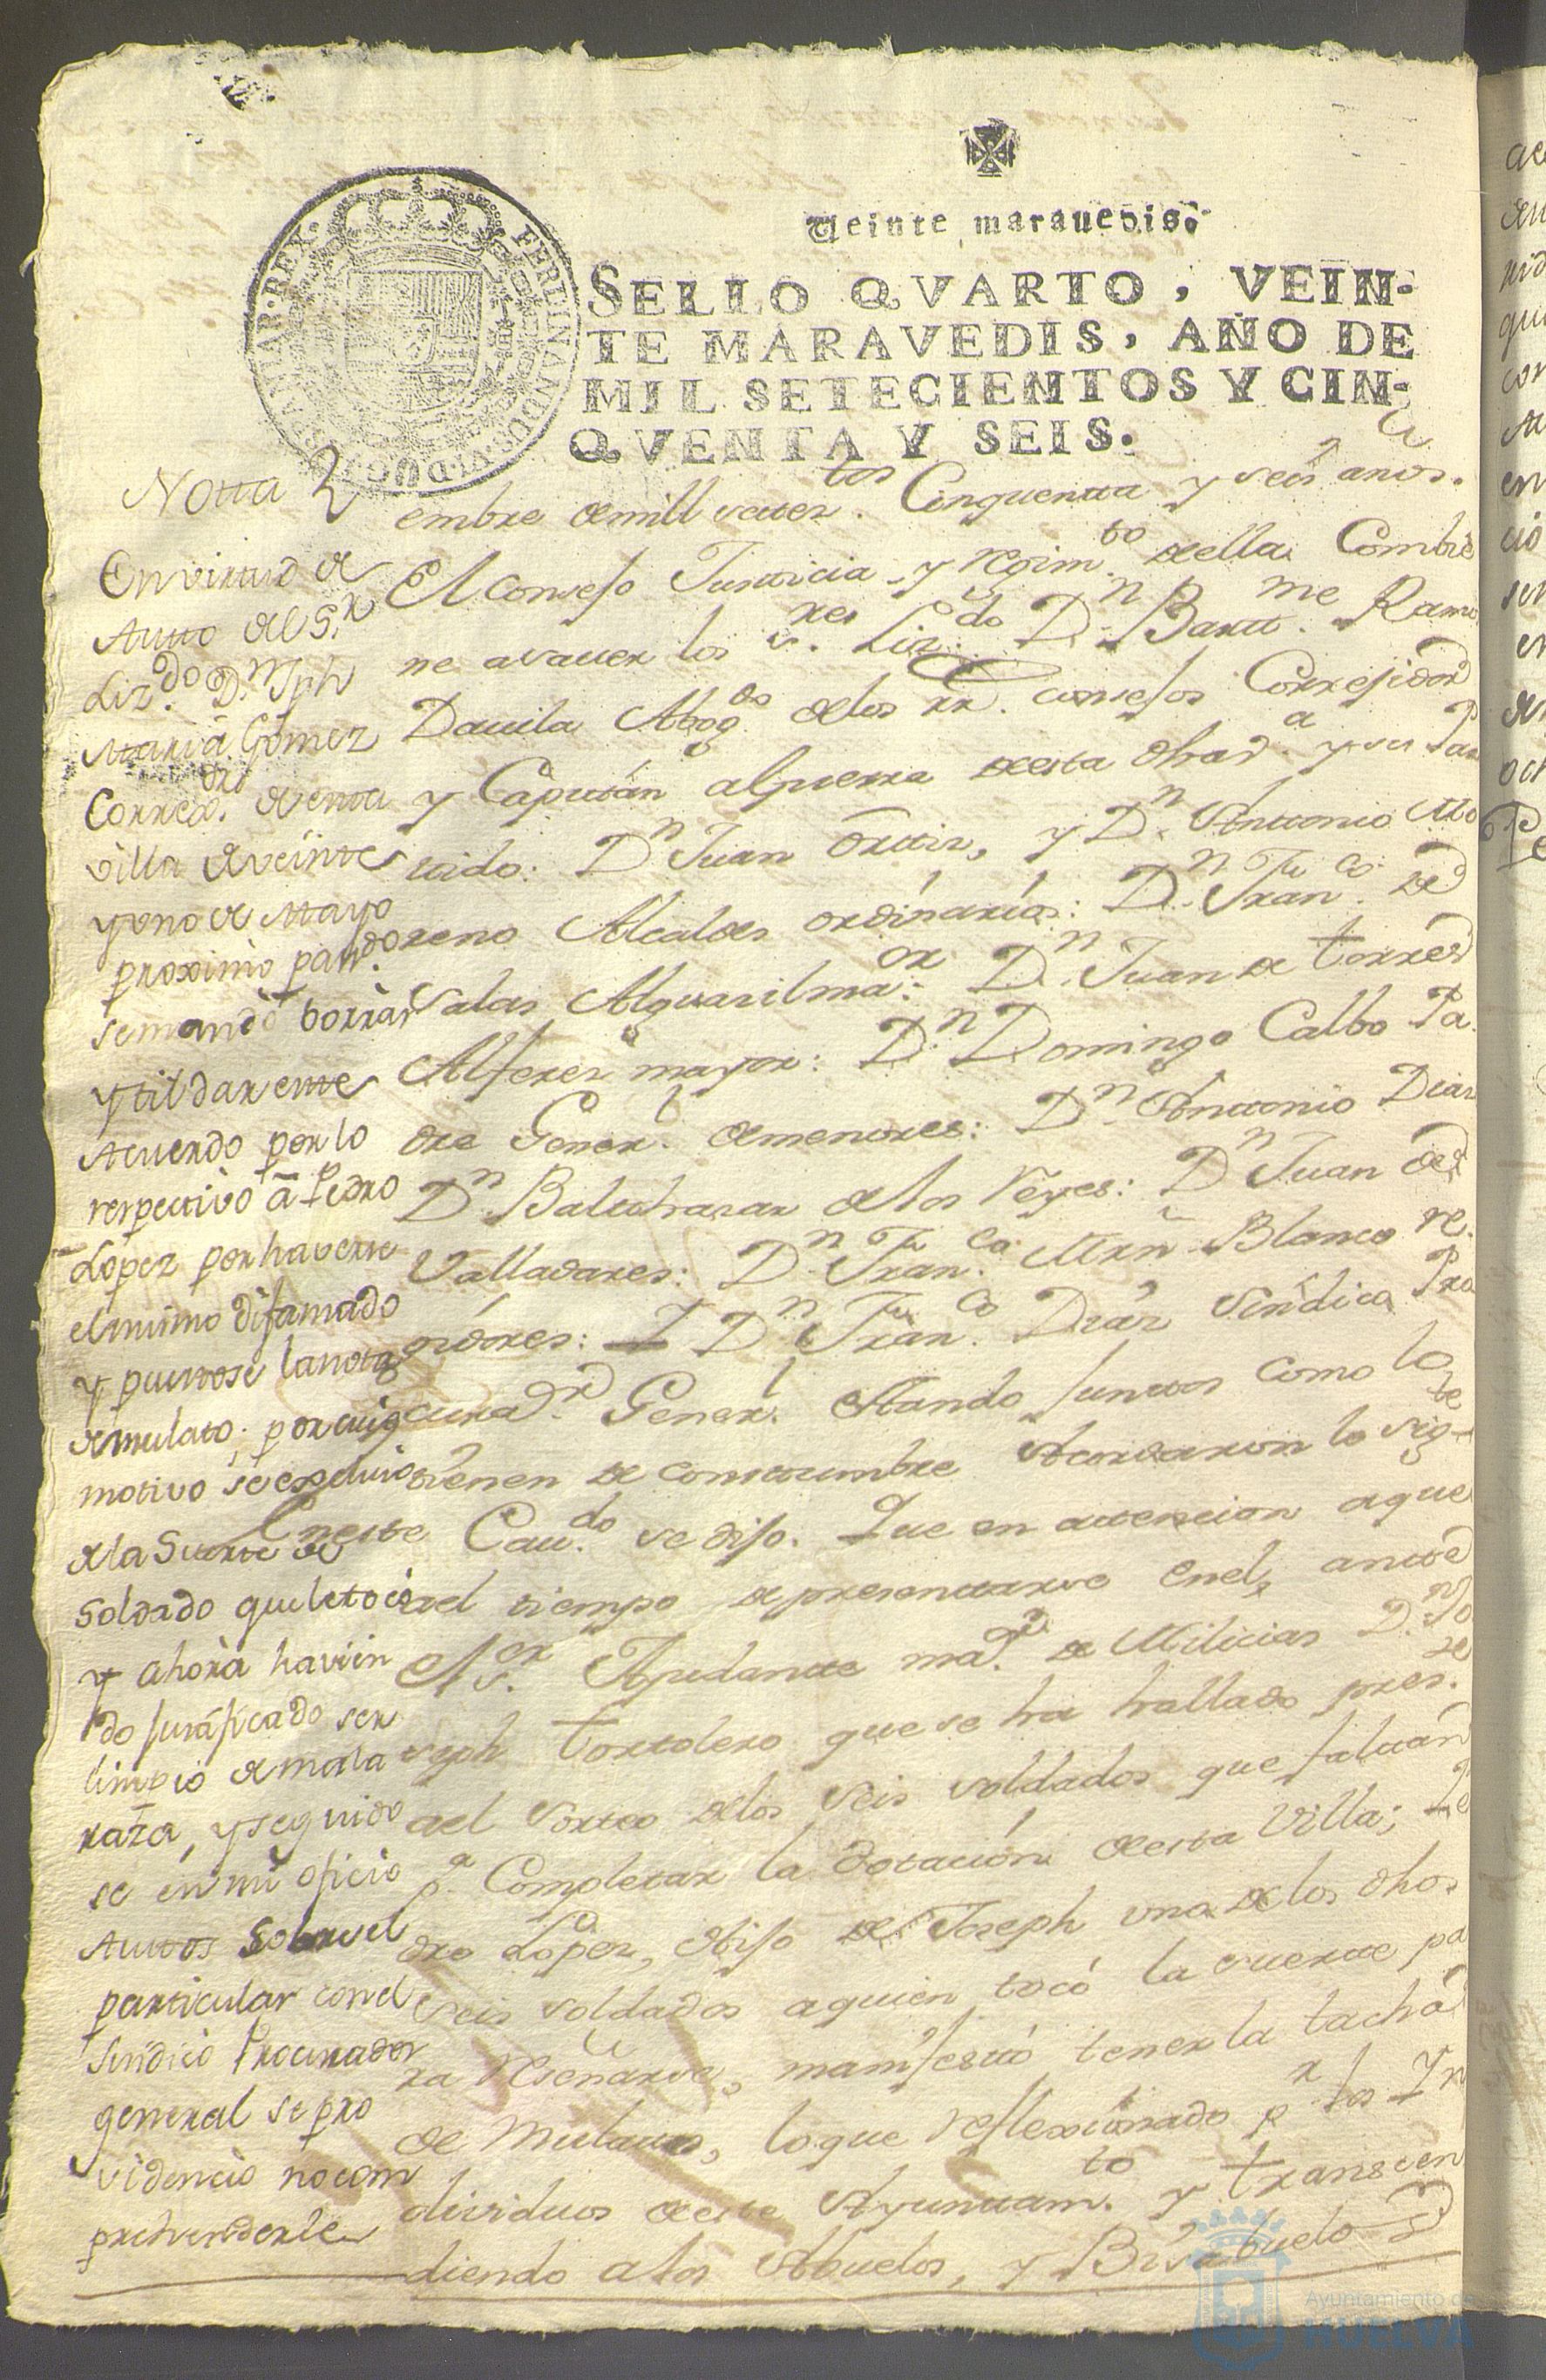 Veinte marauedis.
SELLO QVARTO, VEIN-
TE MARAVEDIS, AÑO DE
MIL SETECIENTOS Y CIN-
QVENTA Y SEIS.
FERDINANDUS VI D G HISPANIAR REX
Notta
En virtud de
Autto del S.r
Liz.do D.n Jph
Maria Gomez
Corred.or desta
villa de veinte
y uno de Mayo
proximo pas.do
se mando borrar
y tildar este
Acuerdo por lo
respectivo â Pedro
Lopez por haverse
el mismo difamado
y puestose la nota
de mulato; por cuio
motivo se excluio
de la Suerte de
Soldado que le toco
y ahora havien
do justificado ser
limpio de mala
raza, y seguido
se en mi oficio
Auttos Sobre el
particular con el
Sindico Procurador
general se pro
videncio no com
prehenderle
embre de mill setez.tos Cinquentta y seis años.
El Consejo Justicia y Regim.to della Combie
ne a saver los s.res Liz.do D.n Bartt.me Ramo
Davila Abog.do de los RR. Consejos Correjidor
y Capitán a guerra desta dha v.a y su Par
tido: D.n Juan Orttiz, y D.n Anttonio Mo
reno Alcaldes ordinarios: D.n Fran.co de
Salas Alguasil ma.or D.n Juan de Torres
Alferez mayor: D.n Domingo Calbo Pa
dre Gener.l de menores: D.n Anttonio Diaz
D.n Balthasar de los Reyes: D.n Juan de
Valladares: D.n Fran.co Mrn Blanco re
gidores: Y D.n Fran.co Diaz Síndico Pro
curad.r Gener.l Estando junttos como lo
tienen de constumbre Acordaron lo sig.te
En este Cav.do se dijo. Que en attencion a que
al tiempo de presenttarse en el, antte
el s.or Ayudantte ma.r de Milicias D.n Jo
seph Tortolero que se ha hallado pres.te
al Sorteo de los seis soldados que faltan
p.a Completar la dotación desta Villa; Pe
dro Lopez, hijo de Joseph uno de los dhos
seis soldados a quien tocó la suertte pa
ra Reseñarse, manifestó tener la tacha
de Mulatto, lo que reflexionado p.r los In
dividuos deste Ayunttam.to y transcen
diendo a los Abuelos, y Bisabuelos
Ayuntamiento de
HUELVA